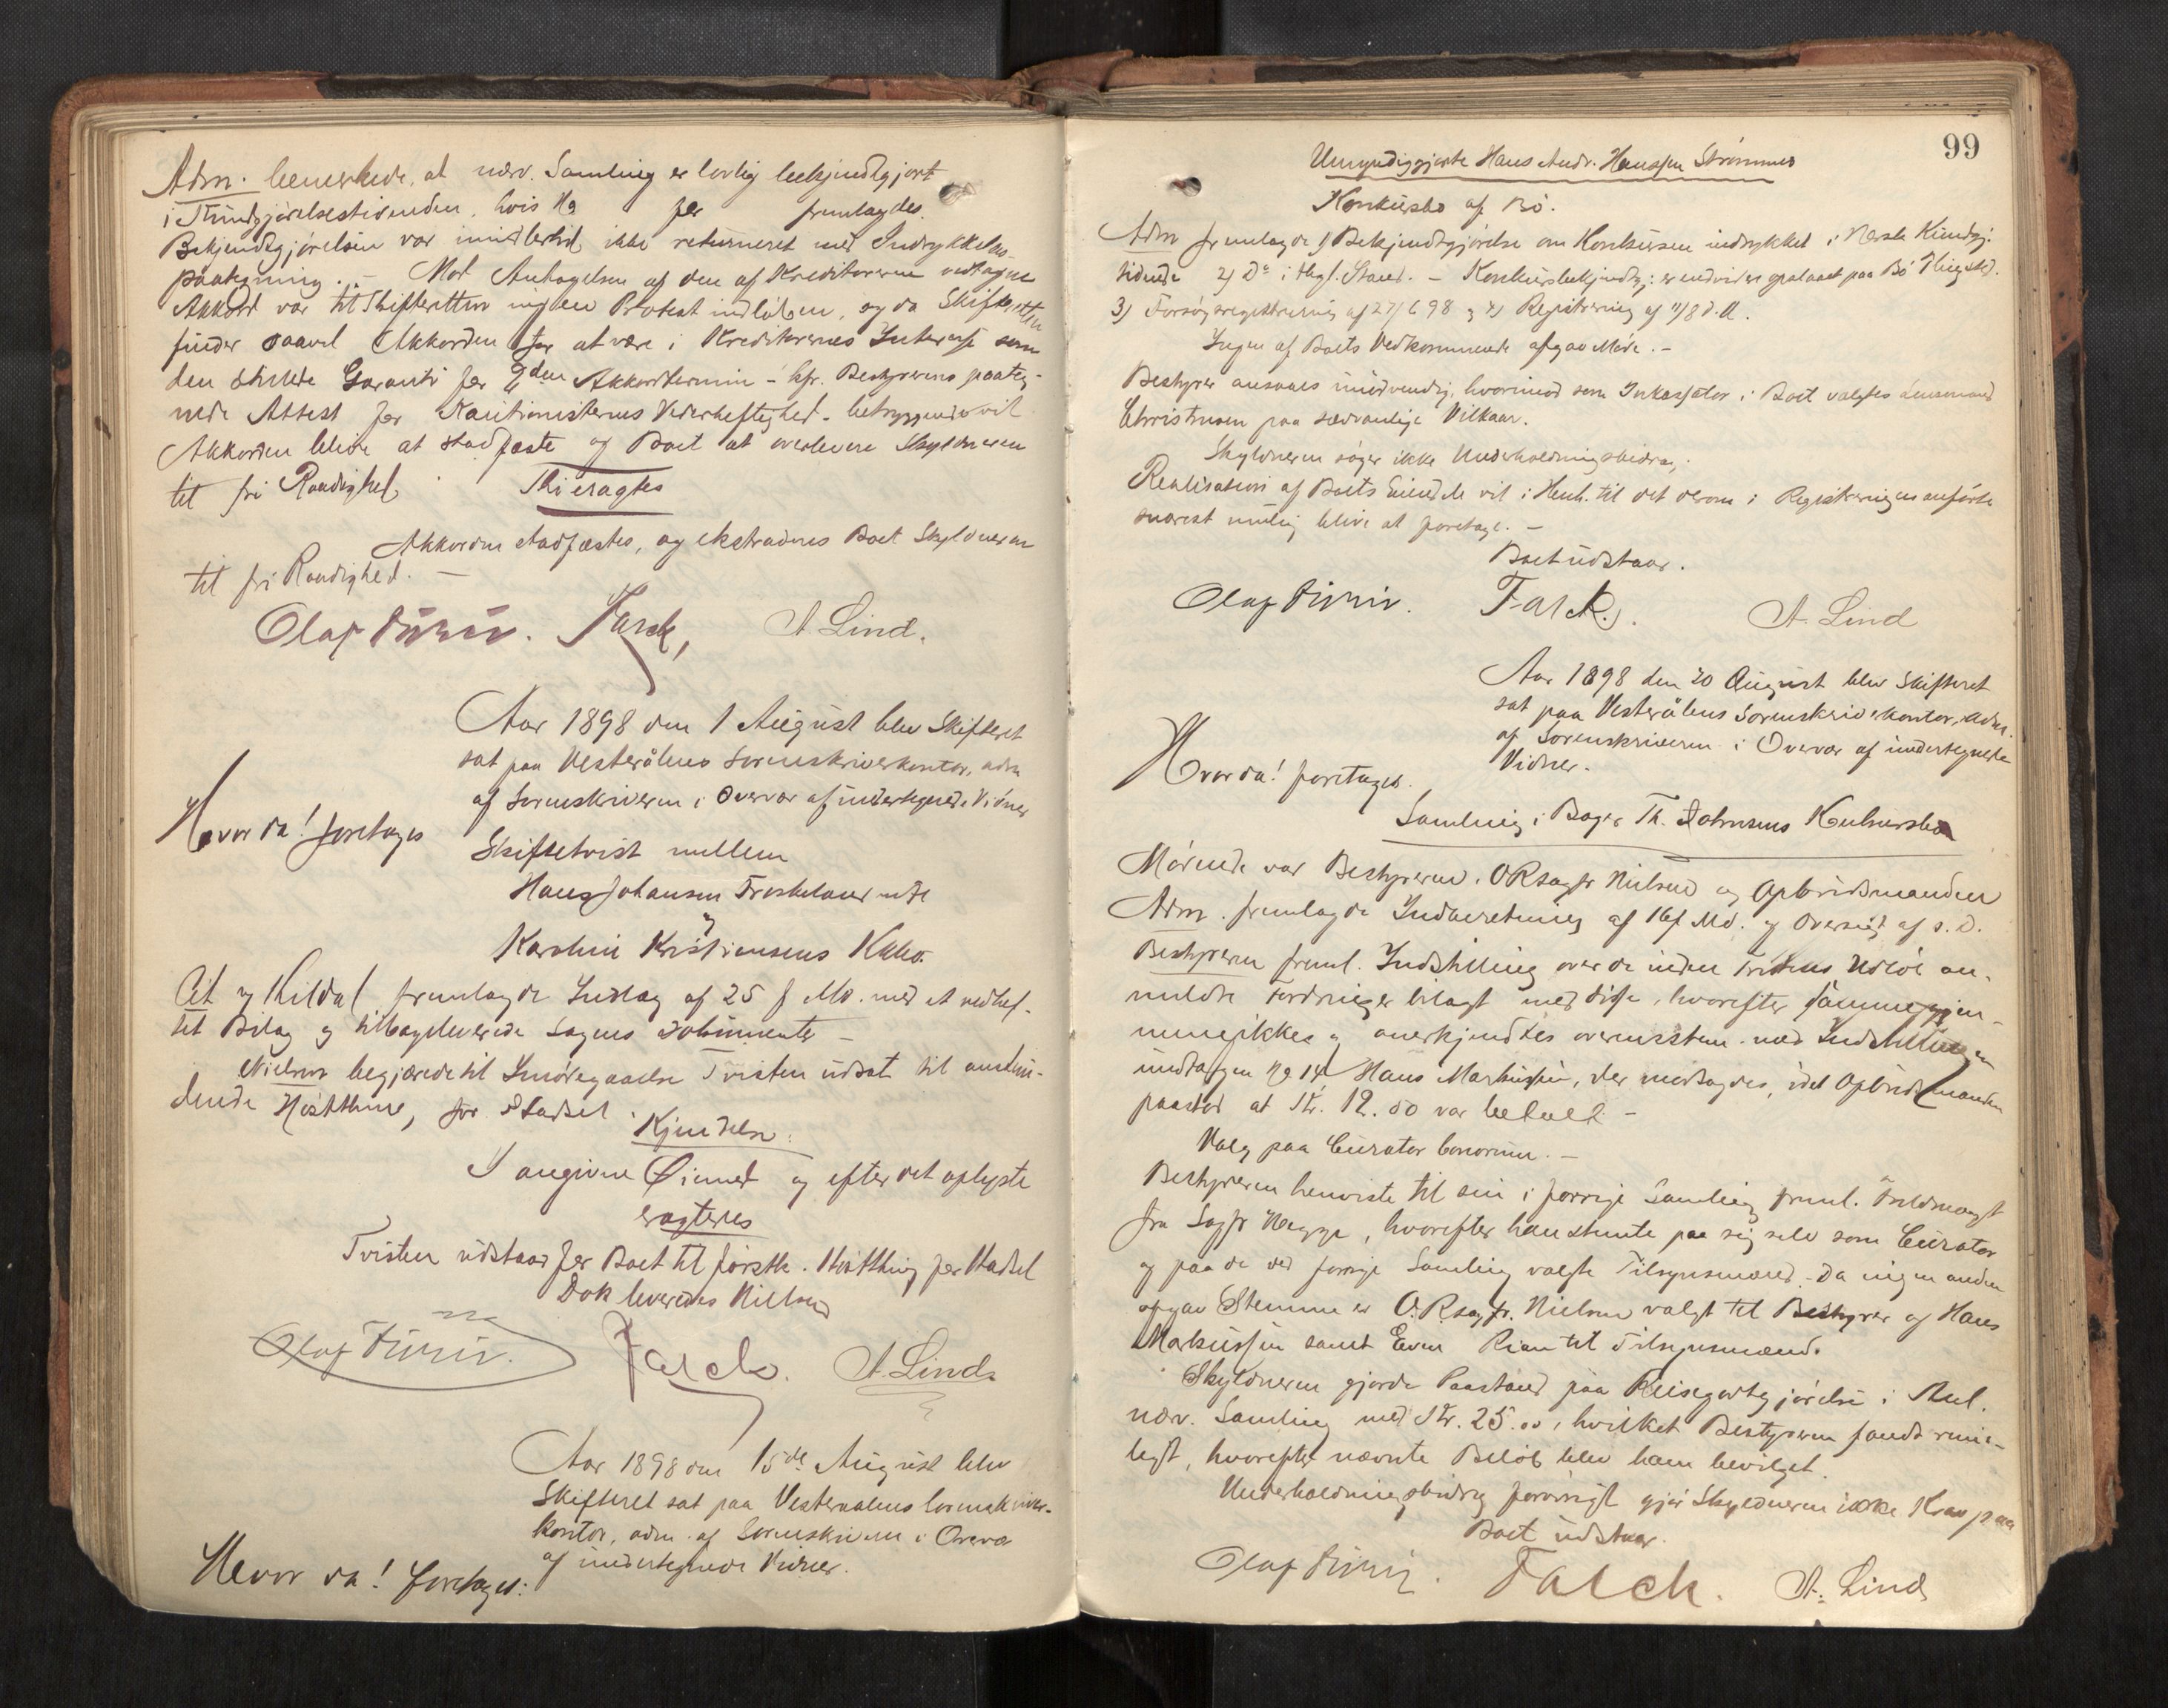 Adm. bemerkede, at nærv. Samling er lovlig bekjendtgjort
i Kundgjørelsestidenden, hvis No for fremlagdes.
Bekjendtgjørelsen var imidlertid ikke returneret med Indrykkelses-
paategning. – Mod Antagelsen af den af Kreditorerne vedtagne
Akkord var til Skifteretten ingen Protest indløben, og da Skifteretten
finder saavel Akkorden for at være i Kreditorernes Interesse som
den stillede Garanti for Akkordtermin – kfr. Bestyrerens paateg-
nede Attest for Kautionisternes Vederheftighed – betryggende vil
Akkorden blive at stadfæste og Boet at overlevere Skyldneren
til fri Raadighed.
Thi eragtes
Akkorden stadfæstes, og ekstraderes Boet Skyldneren
til fri Raadighed. –
Olaf Falck, A Lind.
Aar 1898 den 1 August blev Skifteret
sat paa Vesterålens Sorenskriverkontor, adm
af Sorenskriveren i Overvær af undertegnede Vidner
Hvor da! foretages
Skiftetvist mellem
Hans Johansen
og
Karoline Kristiansens
Cit ved Kildal fremlagde Indlæg af 25 f. Md. med et vedhef-
tet Bilag og tilbageleverede Sagens Dokumenter –
Nielsen begjærede til Imødegaaelse Tvisten udsat til anstun-
dende Høstthing for Hadsel.
Kjendelse:
I angivne Øiemed og efter det oplyste
eragtes
Tvisten udstaar for Boet til førstk. Høstthing for Hadsel
Dok leveredes Nielsen
Olaf Falck. A. Lind
Aar 1898 den 15de August blev
Skifteret sat paa Vesteraalens Sorenskriver-
kontor, adm. af Sorenskriveren i Overvær
af undertegnede Vidner.
Hvor da! foretages:
99
Umyndiggjorte Hans Andr. Hanssen Strømmes
Konkursbo af Bø.
Adm fremlagde 1) Bekjendtgjørelse om Konkursen indrykket i Norsk Kundgj.
tidende 2) Do i – Konkursbekjendtg. er endvidere opslaaet paa Bø Thingsted.
3) Forsøgsregistrering af 27/6 98 og 4) Registrering af 11/8 d.A.
Ingen af Boets Vedkommende afgav Møde. –
Bestyrer ansaaes unødvendig, hvorimod som Inkassator i Boet valgtes Lensmand
Christensen paa sædvanlige Vilkaar.
Skyldneren søger ikke Underholdningsbidrag.
Realisation af Boets Eiendele vil i Henh. til det derom i Registreringen anførte
snarest mulig blive at foretage. –
Boet udstaar.
Olaf Falck. A. Lind
Aar 1898 den 20 August blev Skifteret
sat paa Vesterålens Sorenskriverkontor, adm.
af Sorenskriveren i Overvær af undertegnede
Vidner.
Hvor da! foretages.
Samling i Bager Th. Johnsens Konkursbo
Mødende var Bestyreren, ORsagfr Nielsen og Opbudsmanden
Adm. fremlagde Indberetning af 16 f. Md. og Oversigt af s. D.
Bestyreren freml. Indstilling over de inden Fristens Udløb an-
meldte Fordringer bilagt med disse, hvorefter samme gjen-
nemgikkes og anerkjendtes overensstem. med Indstillingen
undtagen No 14 Hans Markussen, der nedsagdes, idet Opbudsmanden
paastod at Kr. 12.50 var betalt –
Valg paa Curator bonorum. –
Bestyreren henviste til sin i forrige Samling freml. Fuldmagt
fra Sagfr Hegge, hvorefter han stemte paa sig selv som Curator
og paa de ved forrige Samling valgte Tilsynsmænd. Da ingen anden
opgav Stemme er O.Rsagfr. Nielsen valgt til Bestyrer og Hans
Markussen samt Even Rian til Tilsynsmænd.
Skyldneren gjorde Paastand paa Reisegodtgjørelse i Anl.
nærv. Samling med Kr. 25.00, hvilket Bestyreren fandt rime-
ligt, hvorefter nævnte Beløb blev ham bevilget.
Underholdningsbidrag forøvrigt gjør Skyldneren ikke Krav paa
Boet udstaar.
Olaf Falck. A. Lind